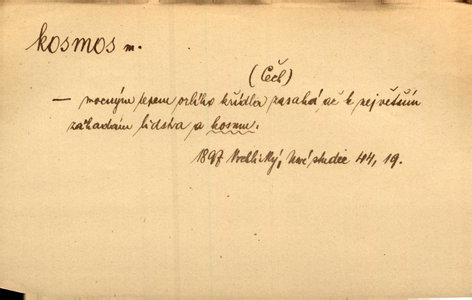 kosmos m.
(Čech)
— mocným letem orlího křídla zasahá, až k největším
záhadám lidstva a kosmu.
1897 Vrchlický, Nové studie 44, 19.